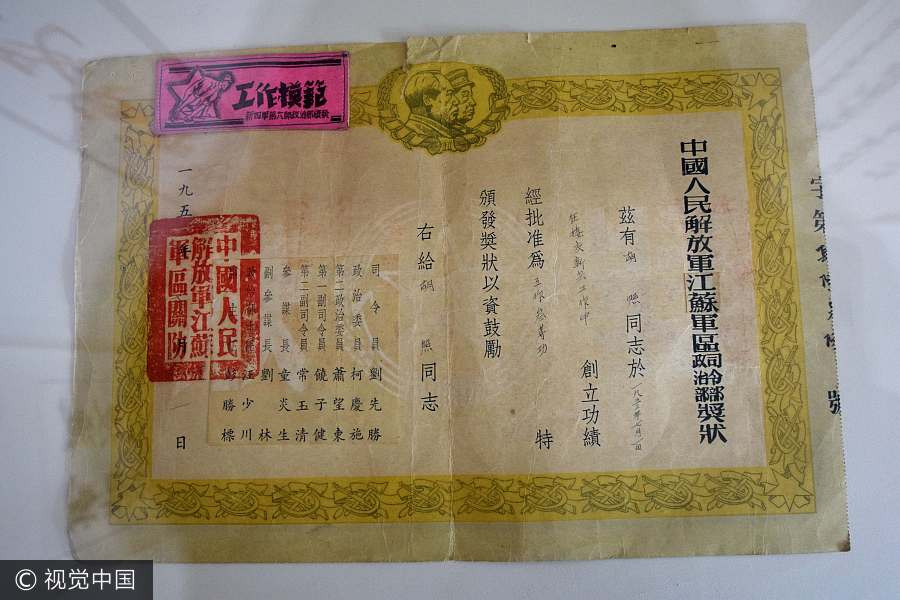 中國人民解放軍江蘇軍區司令部政治部獎狀
茲有胡 照同志於
創立功績
特
經批准爲工作叁等功
頒發獎狀以資鼓勵
右給胡 照同志
司令員劉先勝
政治委員柯慶施
第二政治委員蕭望東
第一副司令員饒子健
第二副司令員常玉清
參謀長童炎生
副參謀長劉 林
江少川
勝標
一九五
日
中國人民
解放軍江蘇
軍區關防
工作模範
新四軍第六師政治部
字第
號
© 视觉中国